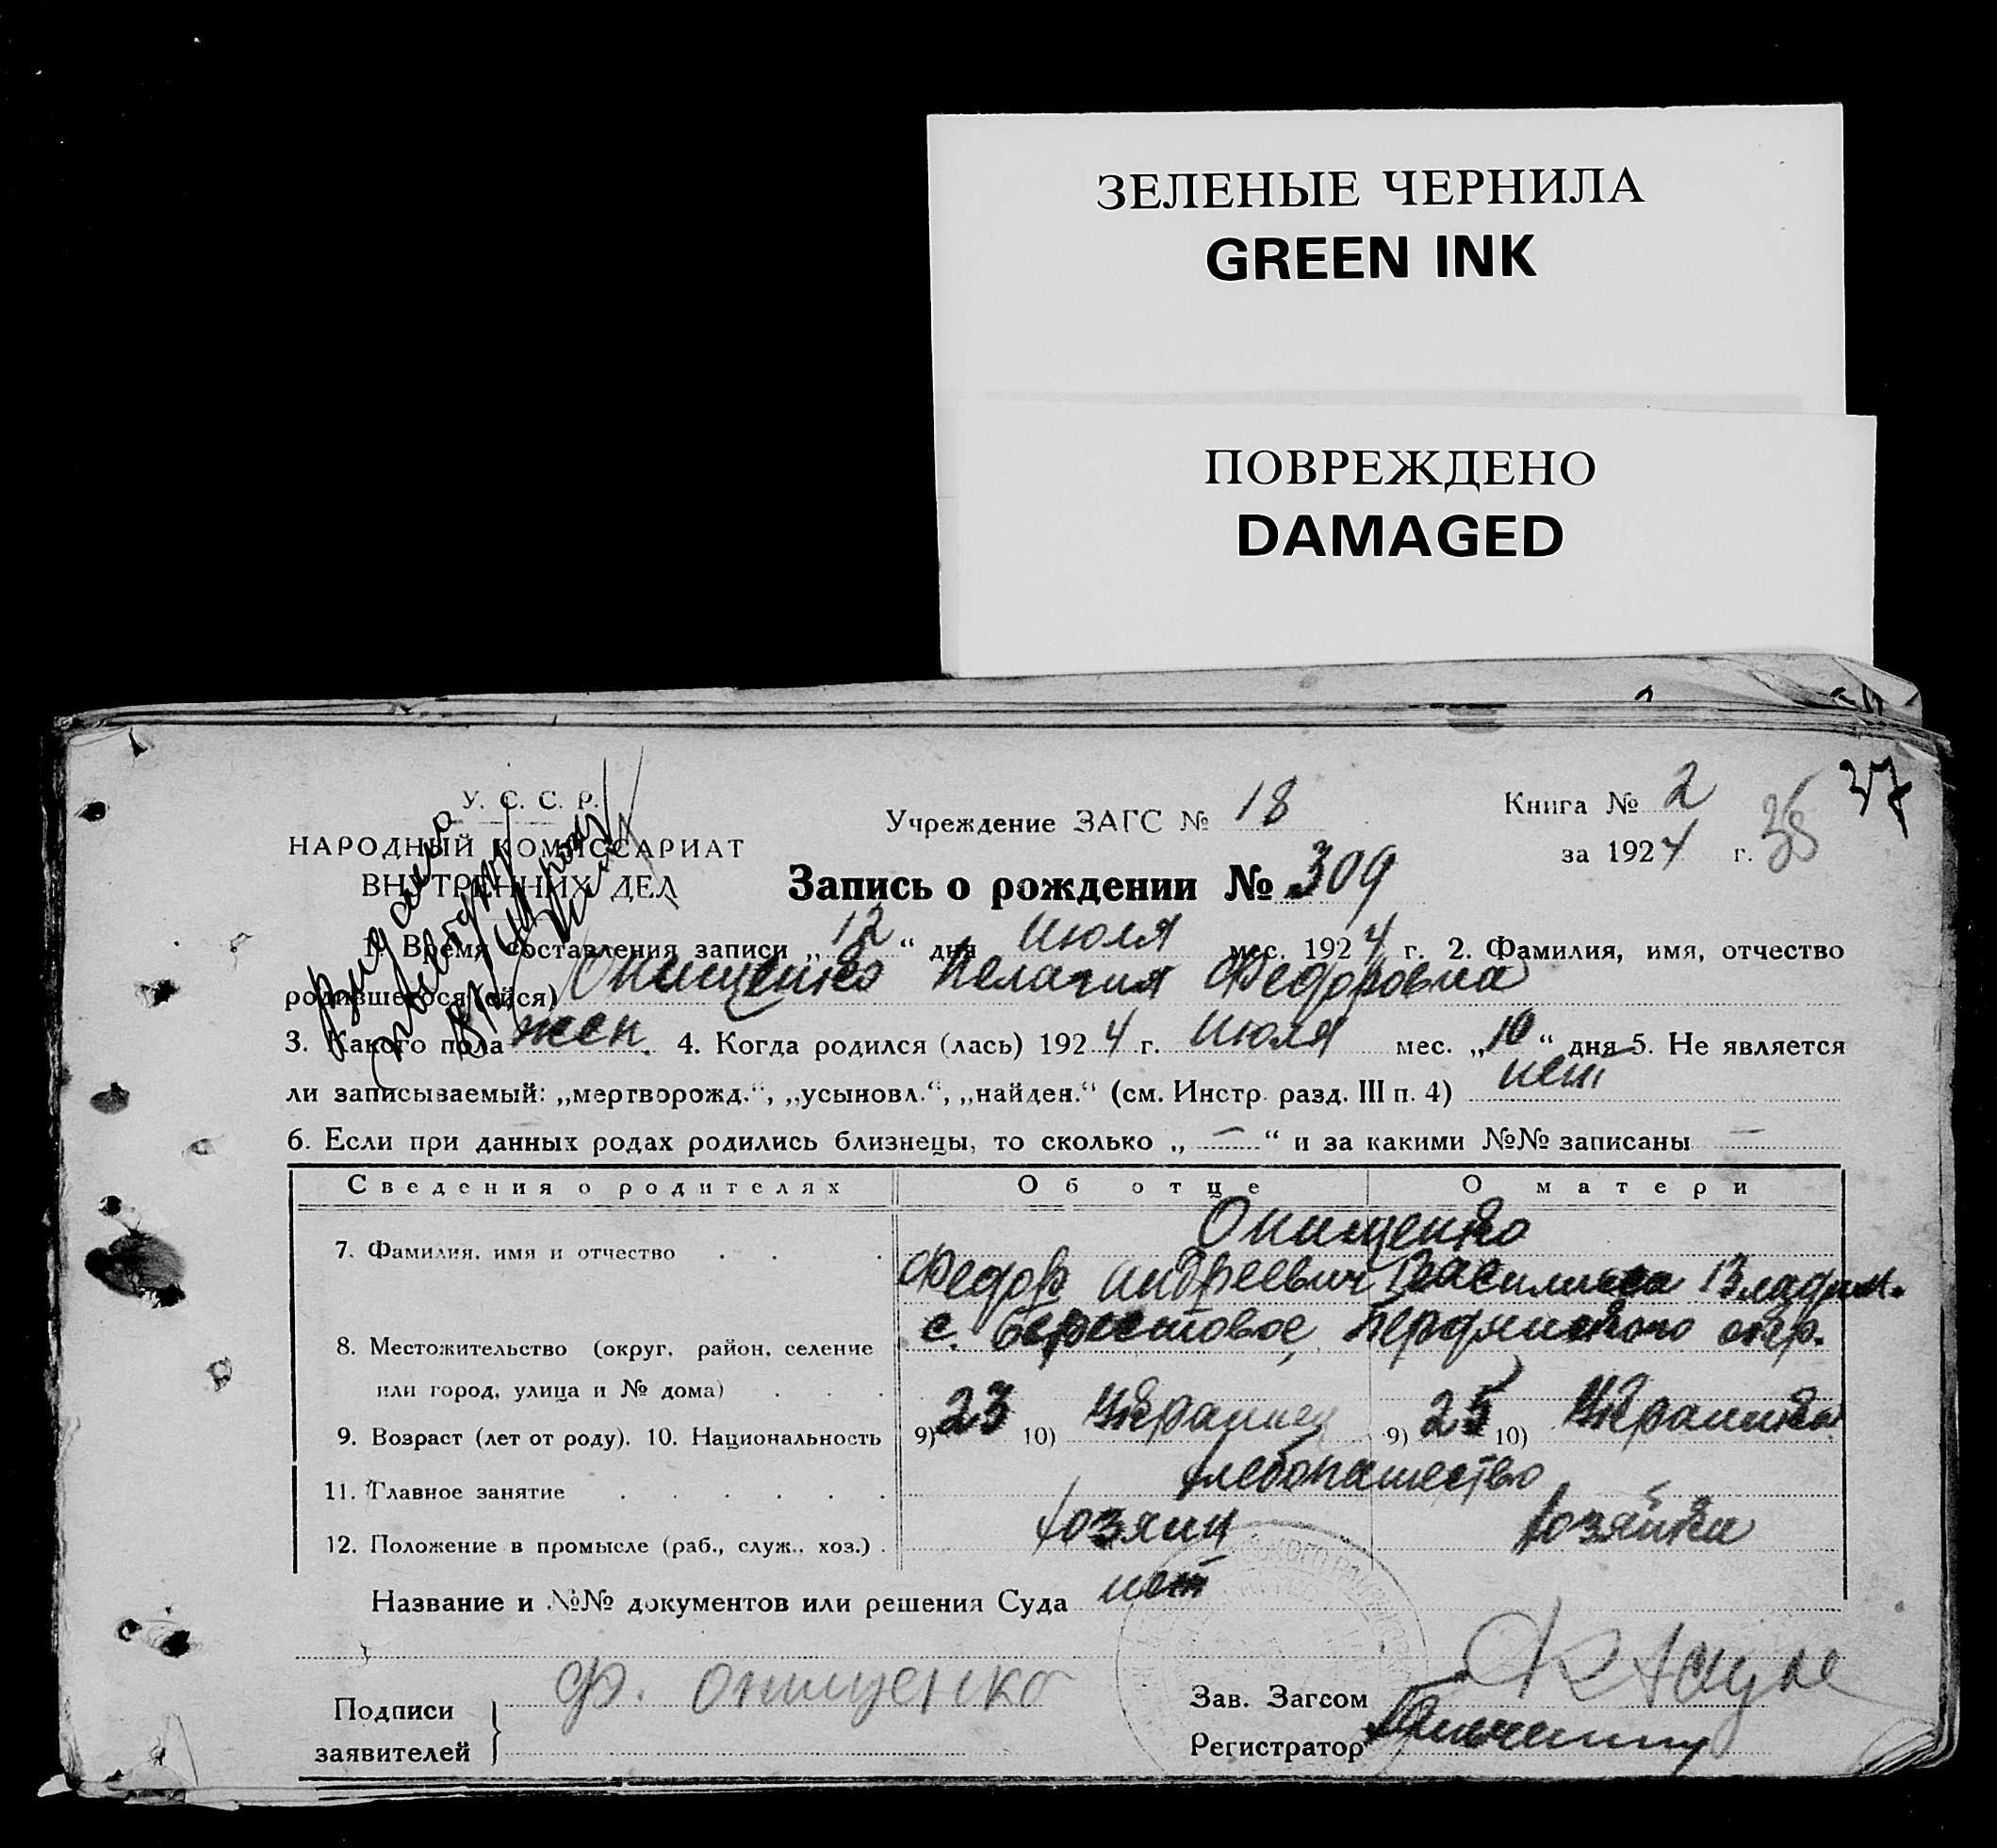 ЗЕЛЕНЫЕ ЧЕРНИЛА
GREEN INK
ПОВРЕЖДЕНО
DAMAGED
У. С. С. Р.
НАРОДНЫЙ КОМИССАРИАТ
ВНУТРЕННИХ ДЕЛ
Учреждение ЗАГС № 18
Книга № 2
за 1924 г.
38
37
Запись о рождении № 309
1. Время составления записи „12“ дня Июля мес. 1924 г. 2. Фамилия, имя, отчество
родившегося (ейся) Онищенко Пелагия Федоровна
3. Какого пола жен. 4. Когда родился (лась) 1924 г. Июля мес. „10“ дня 5. Не является
ли записываемый: „мертворожд.“, „усыновл.“, „найден.“ (см. Инстр. разд. III п. 4) нет
6. Если при данных родах родились близнецы, то сколько „ — “ и за какими №№ записаны —
Сведения о родителях Об отце О матери
Онищенко
7. Фамилия, имя и отчество . . .
Федор Андреевич Василиса Владим.
с. Берестовое, Бердянского окр.
8. Местожительство (округ, район, селение
или город, улица и № дома) . . .
9. Возраст (лет от роду). 10. Национальность 9) 23 10) Украинец 9) 25 10) Украинка
хлебопашество
11. Главное занятие . . . . . .
12. Положение в промысле (раб., служ., хоз.) . хозяин хозяйка
Название и №№ документов или решения Суда нет
Подписи
заявителей
Ф. Онищенко
Зав. Загсом
Регистратор